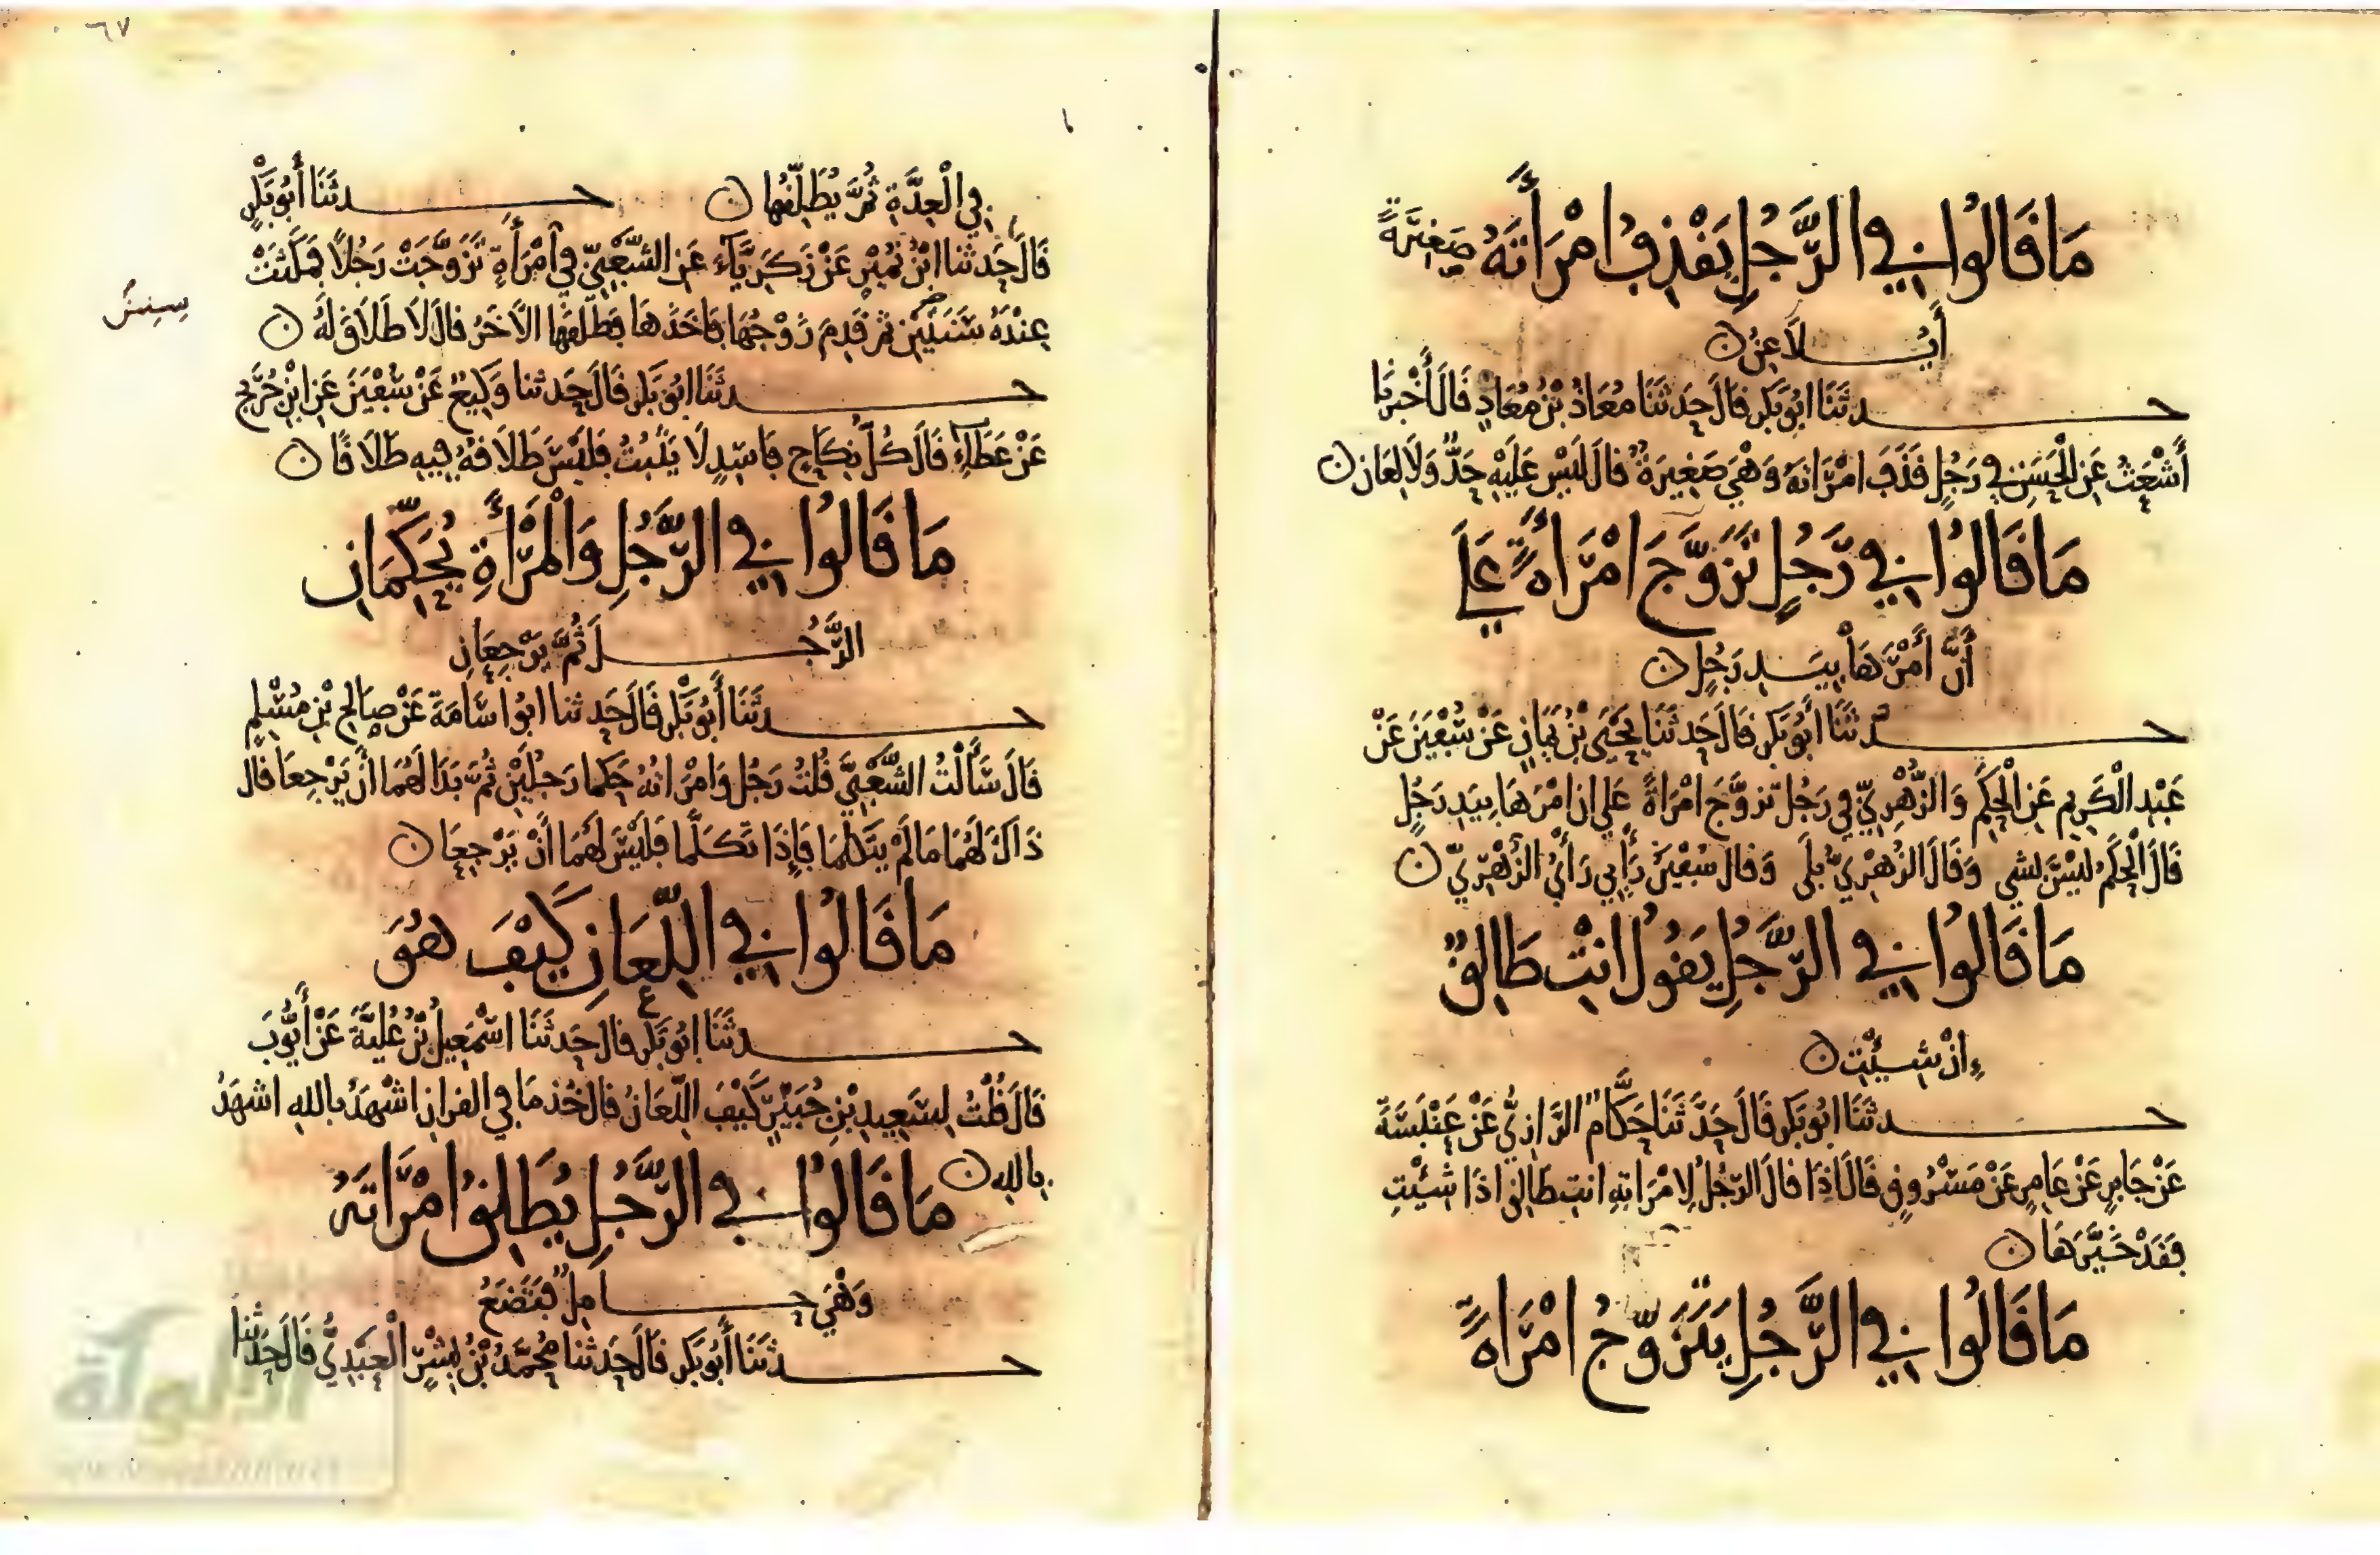 مَا قَالُوا فِي الرَّجُلِ يَقْذِفُ امْرَأَتَهُ صَغِيرَةً
أَيُلَاعِنُ
حدثَنَا ابُو بَكر قَالَ حَدثَنَا مُعَاذُ بْنُ مُعَاذٍ قَالَ أَخْبَرَنَا
أَشْعَثُ عَنِ الْحَسَنِ فِي رَجُلٍ قَذَفَ امْرَاتهُ وَهْيَ صَغِيرَةٌ قَالَ لَيْسَ عَلَيْهِ حَدٌّ وَلَا لِعَان
مَا قَالُوا فِي رَجُلٍ تَزَوَّجَ امْرَأَةً عَلَى
أَنَّ أَمْرَهَا بِيَدِ رَجُلٍ
حدثَنَا أَبُو بَكر قَالَ حَدثَنَا يَحْيَى بْنُ يَمَانٍ عَنْ سُفْيَنَ عَنْ
عَبْدِ الْكَرِيمِ عَنِ الْحَكَمِ وَالزُّهْرِيِّ فِي رَجُل تزوَّجَ امْرَاةً عَلى ان امْرَهَا بِيَدِ رَجُلٍ
قَالَ الْحَكَمُ لَيْسَ بشى وَقَالَ الزُهْرِيُّ بَلَى وَقَالَ سُفْيَنُ رَأْيِي رَأْيُ الزُّهْرِيِّ
مَا قَالُوا فِي الرَّجُلِ يَقُولُ انْتِ طَالِقٌ
إِنْ شِئْتِ
حدثَنَا ابُو بَكر قَالَ حَدَّثَنَا حَكَّامٌ الرَّازِيُّ عَنْ عَنْبَسَةَ
عَنْ جَابِرٍ عَنْ عَامِرٍ عَنْ مَسْرُوقٍ قَالَ اذَا قَالَ الرَّجُلُ لِامْرَاتِهِ انتِ طَالِق اذَا شِئْتِ
فَقَدْ خَيَّرَهَا
مَا قَالُوا فِي الرَّجُلِ يَتَزَوَّجُ امْرَاةً
٦٧
فِي الْعِدَّةِ ثُمَّ يُطَلِّقُهَا حدثَنَا أَبُو بَكْرٍ
قَالَ حَدثنا ابْنُ نُمَيْرٍ عَنْ زَكَرِيَّاءَ عَنِ الشَّعْبِيِّ فِي امْرَأَةٍ تَزَوَّجَتْ رَجُلًا فَمَكَثَتْ
عِنْدَهُ سَنَتَيْنِ ثم قَدِمَ زَوْجُهَا فَاخَذَهَا فَطَلَّقَهَا الاخَرُ قَالَ لَا طَلَاقَ لَهُ
حدثَنَا ابُو بَكر قَالَ حَدثنا وَكِيعٌ عَنْ سُفْيَنَ عَنِ ابْنِ جُرَيْجٍ
عَنْ عَطَاءٍ قَالَ كُلُّ نِكَاحٍ فَاسِدٍ لَا يَثْبُتُ فَلَيْسَ طَلَاقهُ فِيهِ طَلَاقًا
مَا قَالُوا فِي الرَّجُلِ وَالْمَرْأَةِ يُحَكِّمَانِ
الرَّجُلَ ثُمَّ يَرْجِعَانِ
حدثَنَا أَبُو بَكْر قَالَ حَدثنا ابُو اسَامَةَ عَنْ صَالِحِ بْنِ مُسْلِمٍ
قَالَ سَأَلْتُ الشَّعْبِيَّ قُلتُ رَجُل وَامْرَاتُهُ حَكما رَجُلَيْنِ ثُمَّ بَدَا لَهُمَا أَنْ يَرْجِعَا قَالَ
ذَاكَ لَهُمَا مَا لَمْ يَتَكَلَّمَا فَإِذَا تَكَلَّمَا فَلَيْسَ لَهُمَا أَنْ يَرْجِعَا
مَا قَالُوا فِي اللِّعَانِ كَيْفَ هُوَ
حدثَنَا ابُو بَكر قَالَ حَدثَنَا اسْمَعِيلُ بْنُ عُلَيَّةَ عَنْ أَيُّوبَ
قَالَ قُلْتُ لِسَعِيدِ بْنِ جُبَيْرٍ كَيْفَ اللِّعَانُ قَالَ خُذ مَا فِي القران اشْهَدُ بِاللهِ اشهَدُ
بالله مَا قَالُوا فِي الرَّجُلِ يُطَلِّقُ امْرَاتَهُ
وَهْيَ حَامِلٌ فَتَضَعُ
حدثَنَا أَبُو بَكر قَالَ حَدثنا مُحَمَّدُ بْنُ بِشْرٍ الْعَبْدِيُّ قَالَ حَدثنا
الألوكة